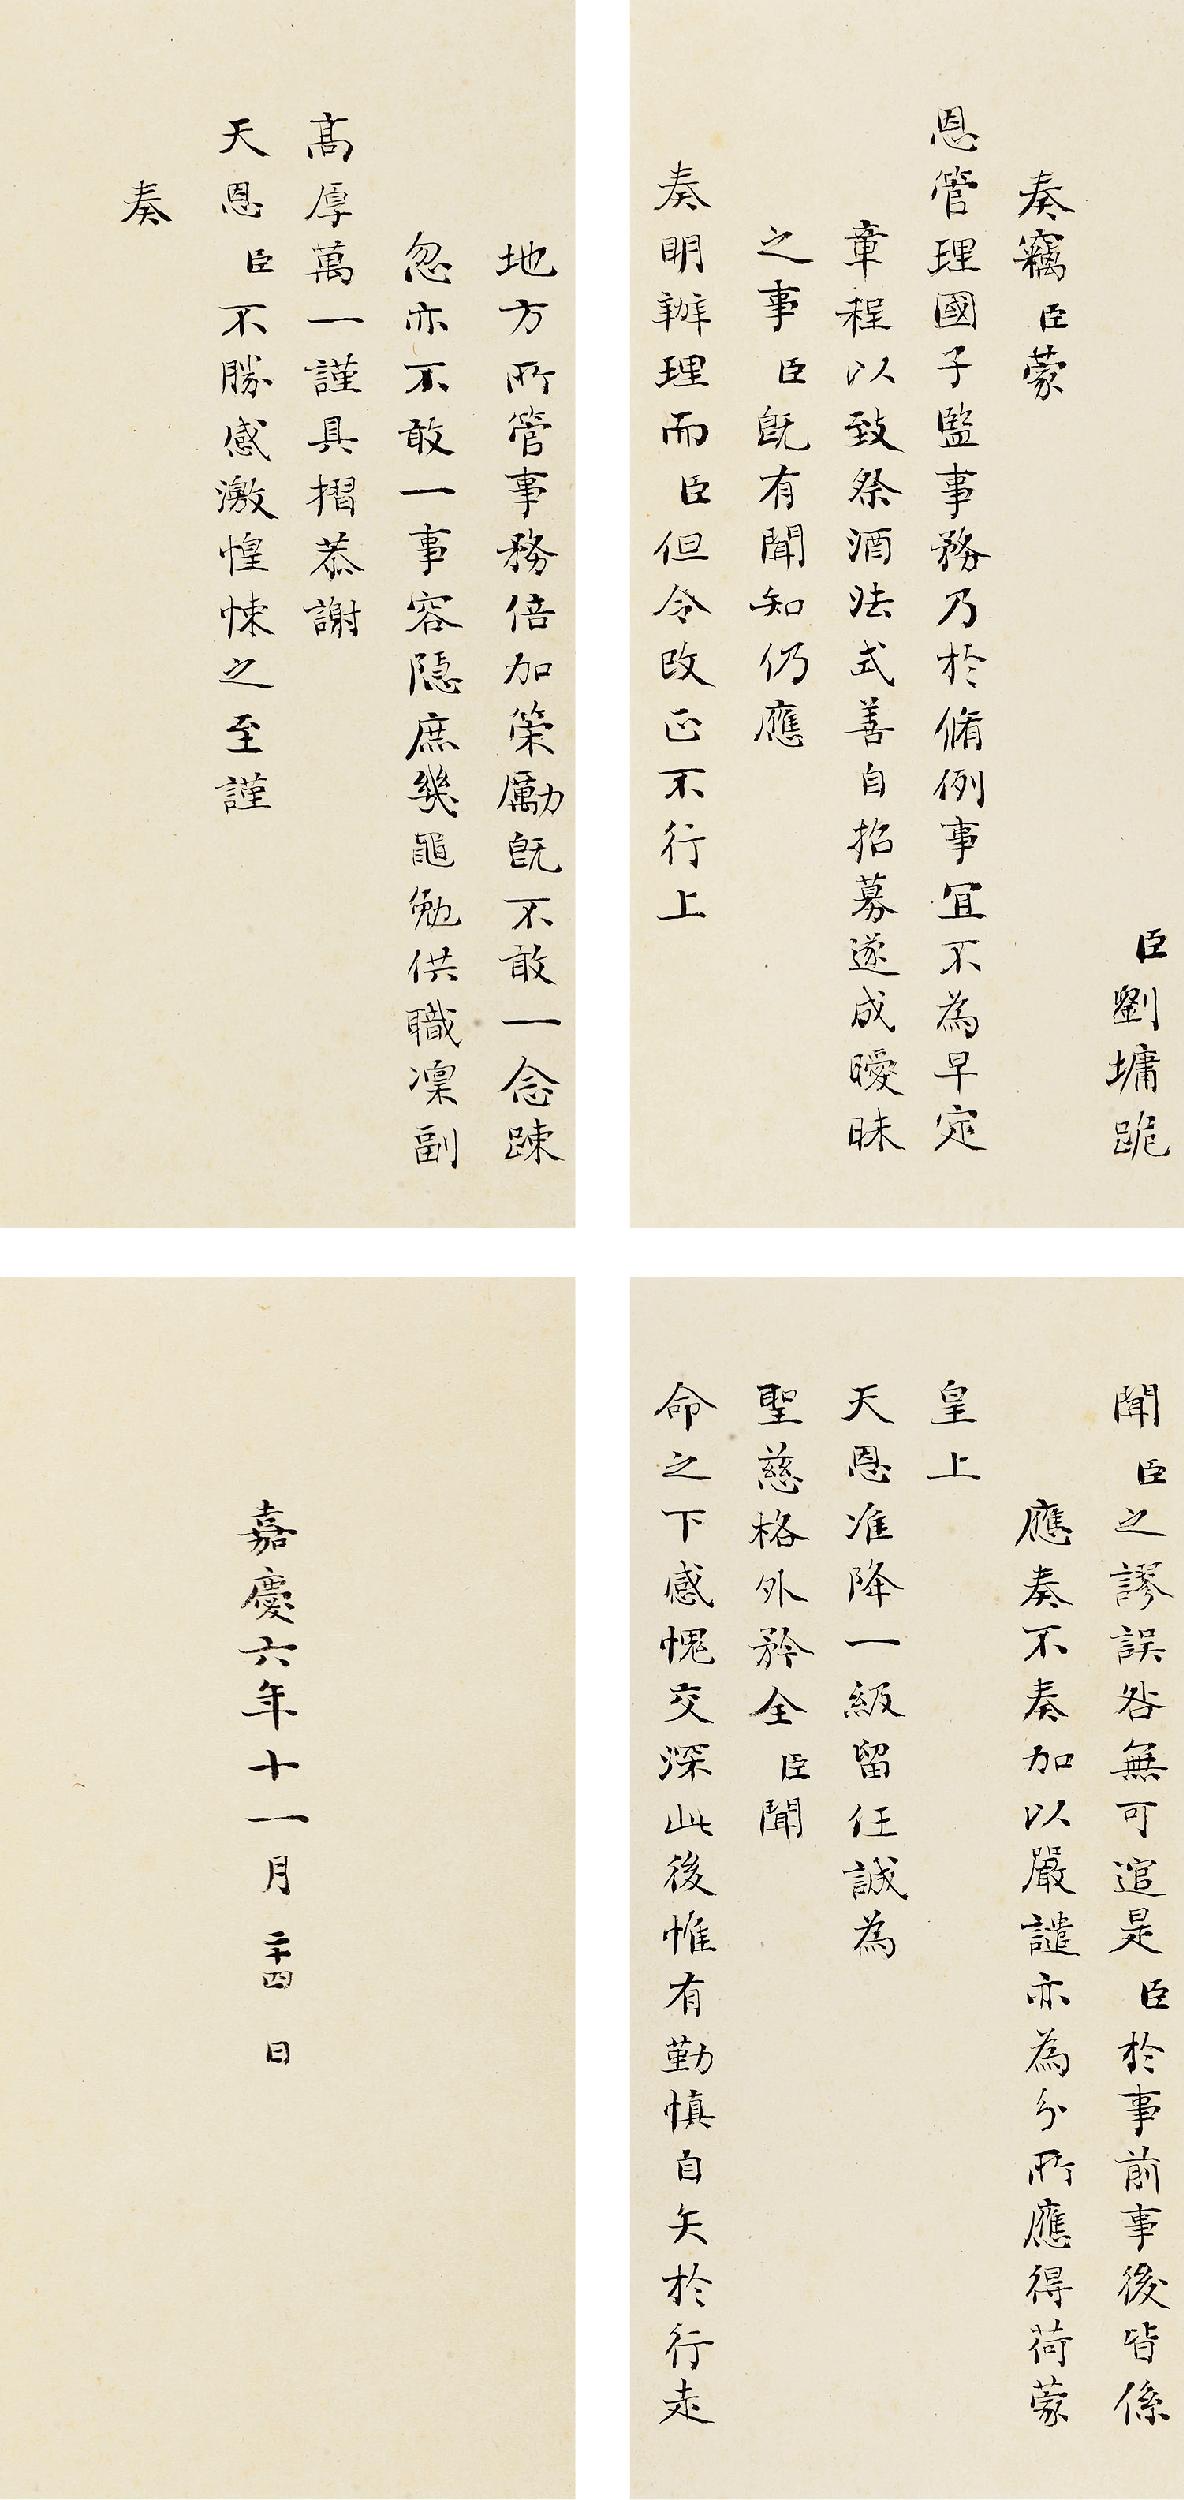 臣劉墉跪
奏竊臣蒙
恩管理國子監事務乃於脩例事宜不為早定
章程以致祭酒法式善自招募遂成曖昧
之事臣既有聞知仍應
奏明辦理而臣但令改正不行上
聞臣之謬誤咎無可逭是臣於事前事後皆係
應奏不奏加以嚴譴亦為分所應得荷蒙
皇上
天恩准降一級留任誠為
聖慈格外矜全臣聞
命之下感愧交深此後惟有勤慎自矢於行走
地方所管事務倍加策勵既不敢一念踈
忽亦不敢一事容隱庶幾黽勉供職凜副
高厚萬一謹具摺恭謝
天恩臣不勝感激惶悚之至謹
奏
嘉慶六年十一月二十四日